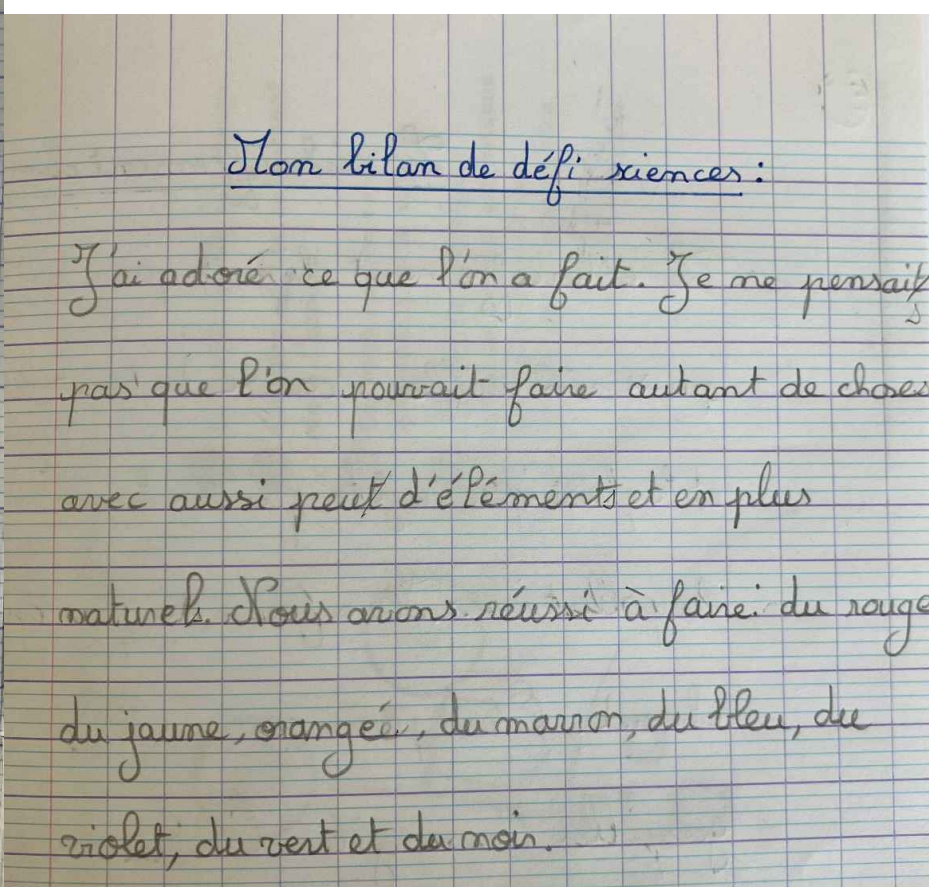 Mon bilan de défi sciences :
J'ai adoré ce que l'on a fait. Je ne pensais
pas que l'on pouvait faire autant de choses
avec aussi peu d'éléments et en plus
naturels. Nous avons réussi à faire : du rouge
du jaune, orangée, du marron, du bleu, du
violet, du vert et du noir.